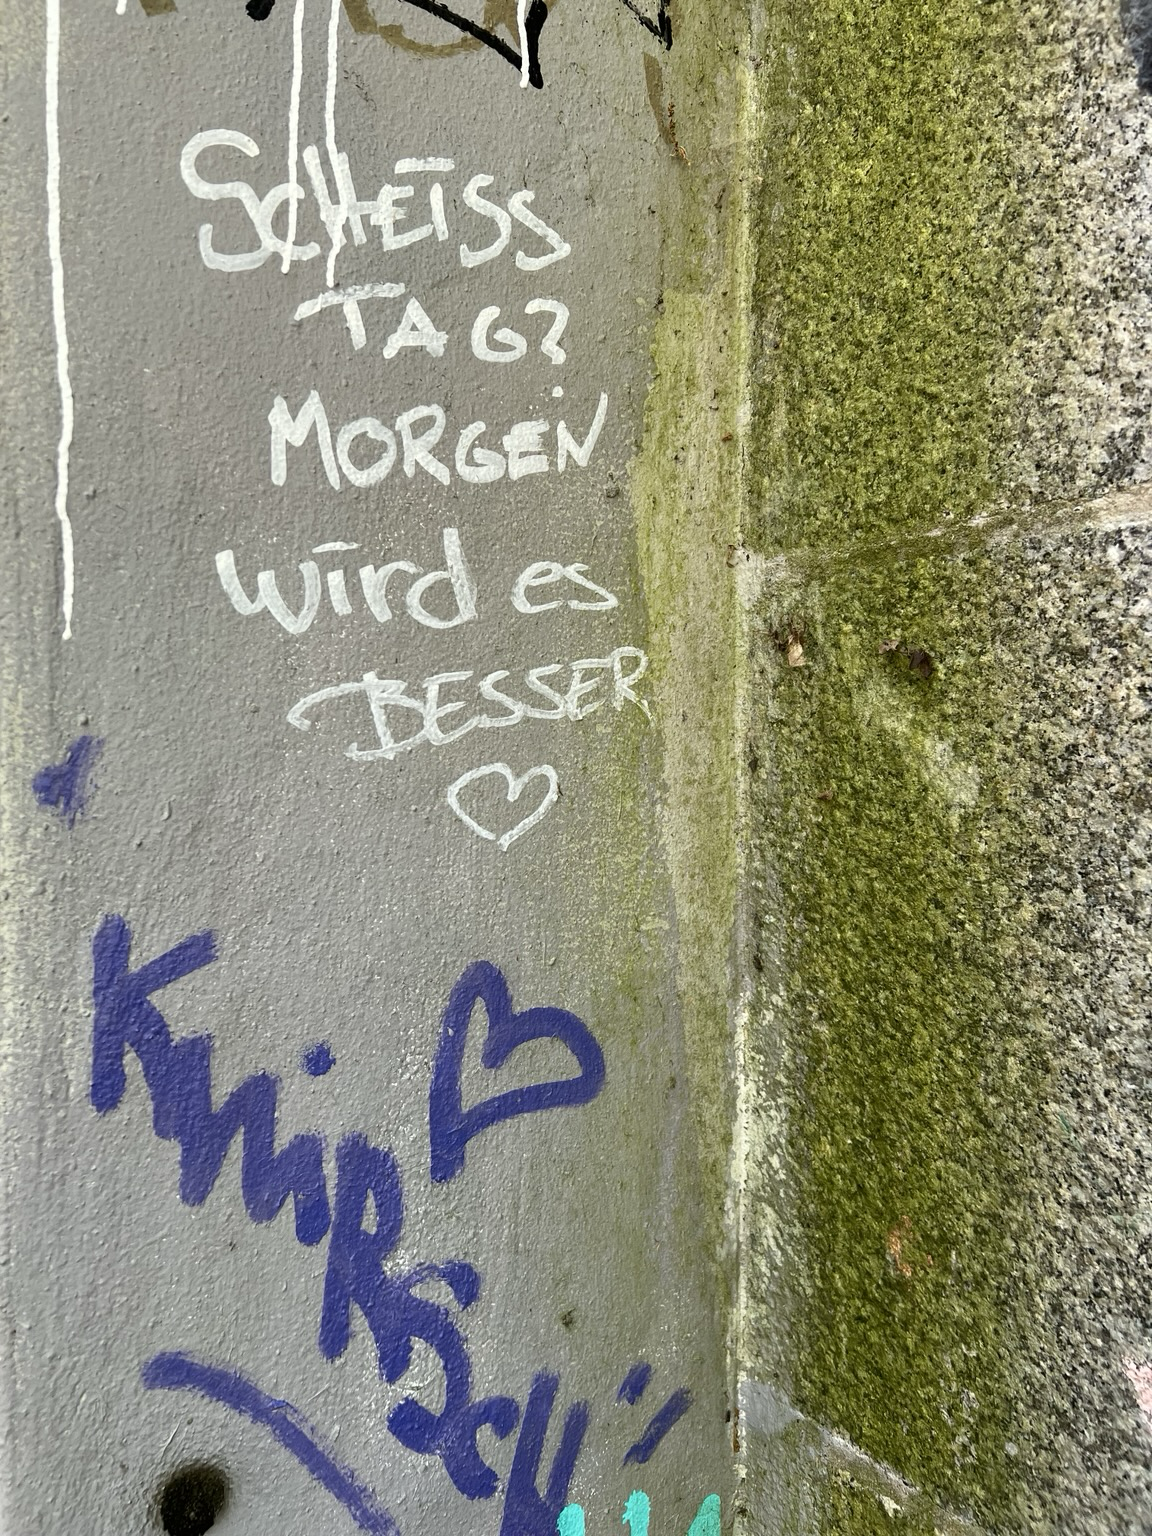 SCHEISS
TAG?
MORGEN
wird es
BESSER